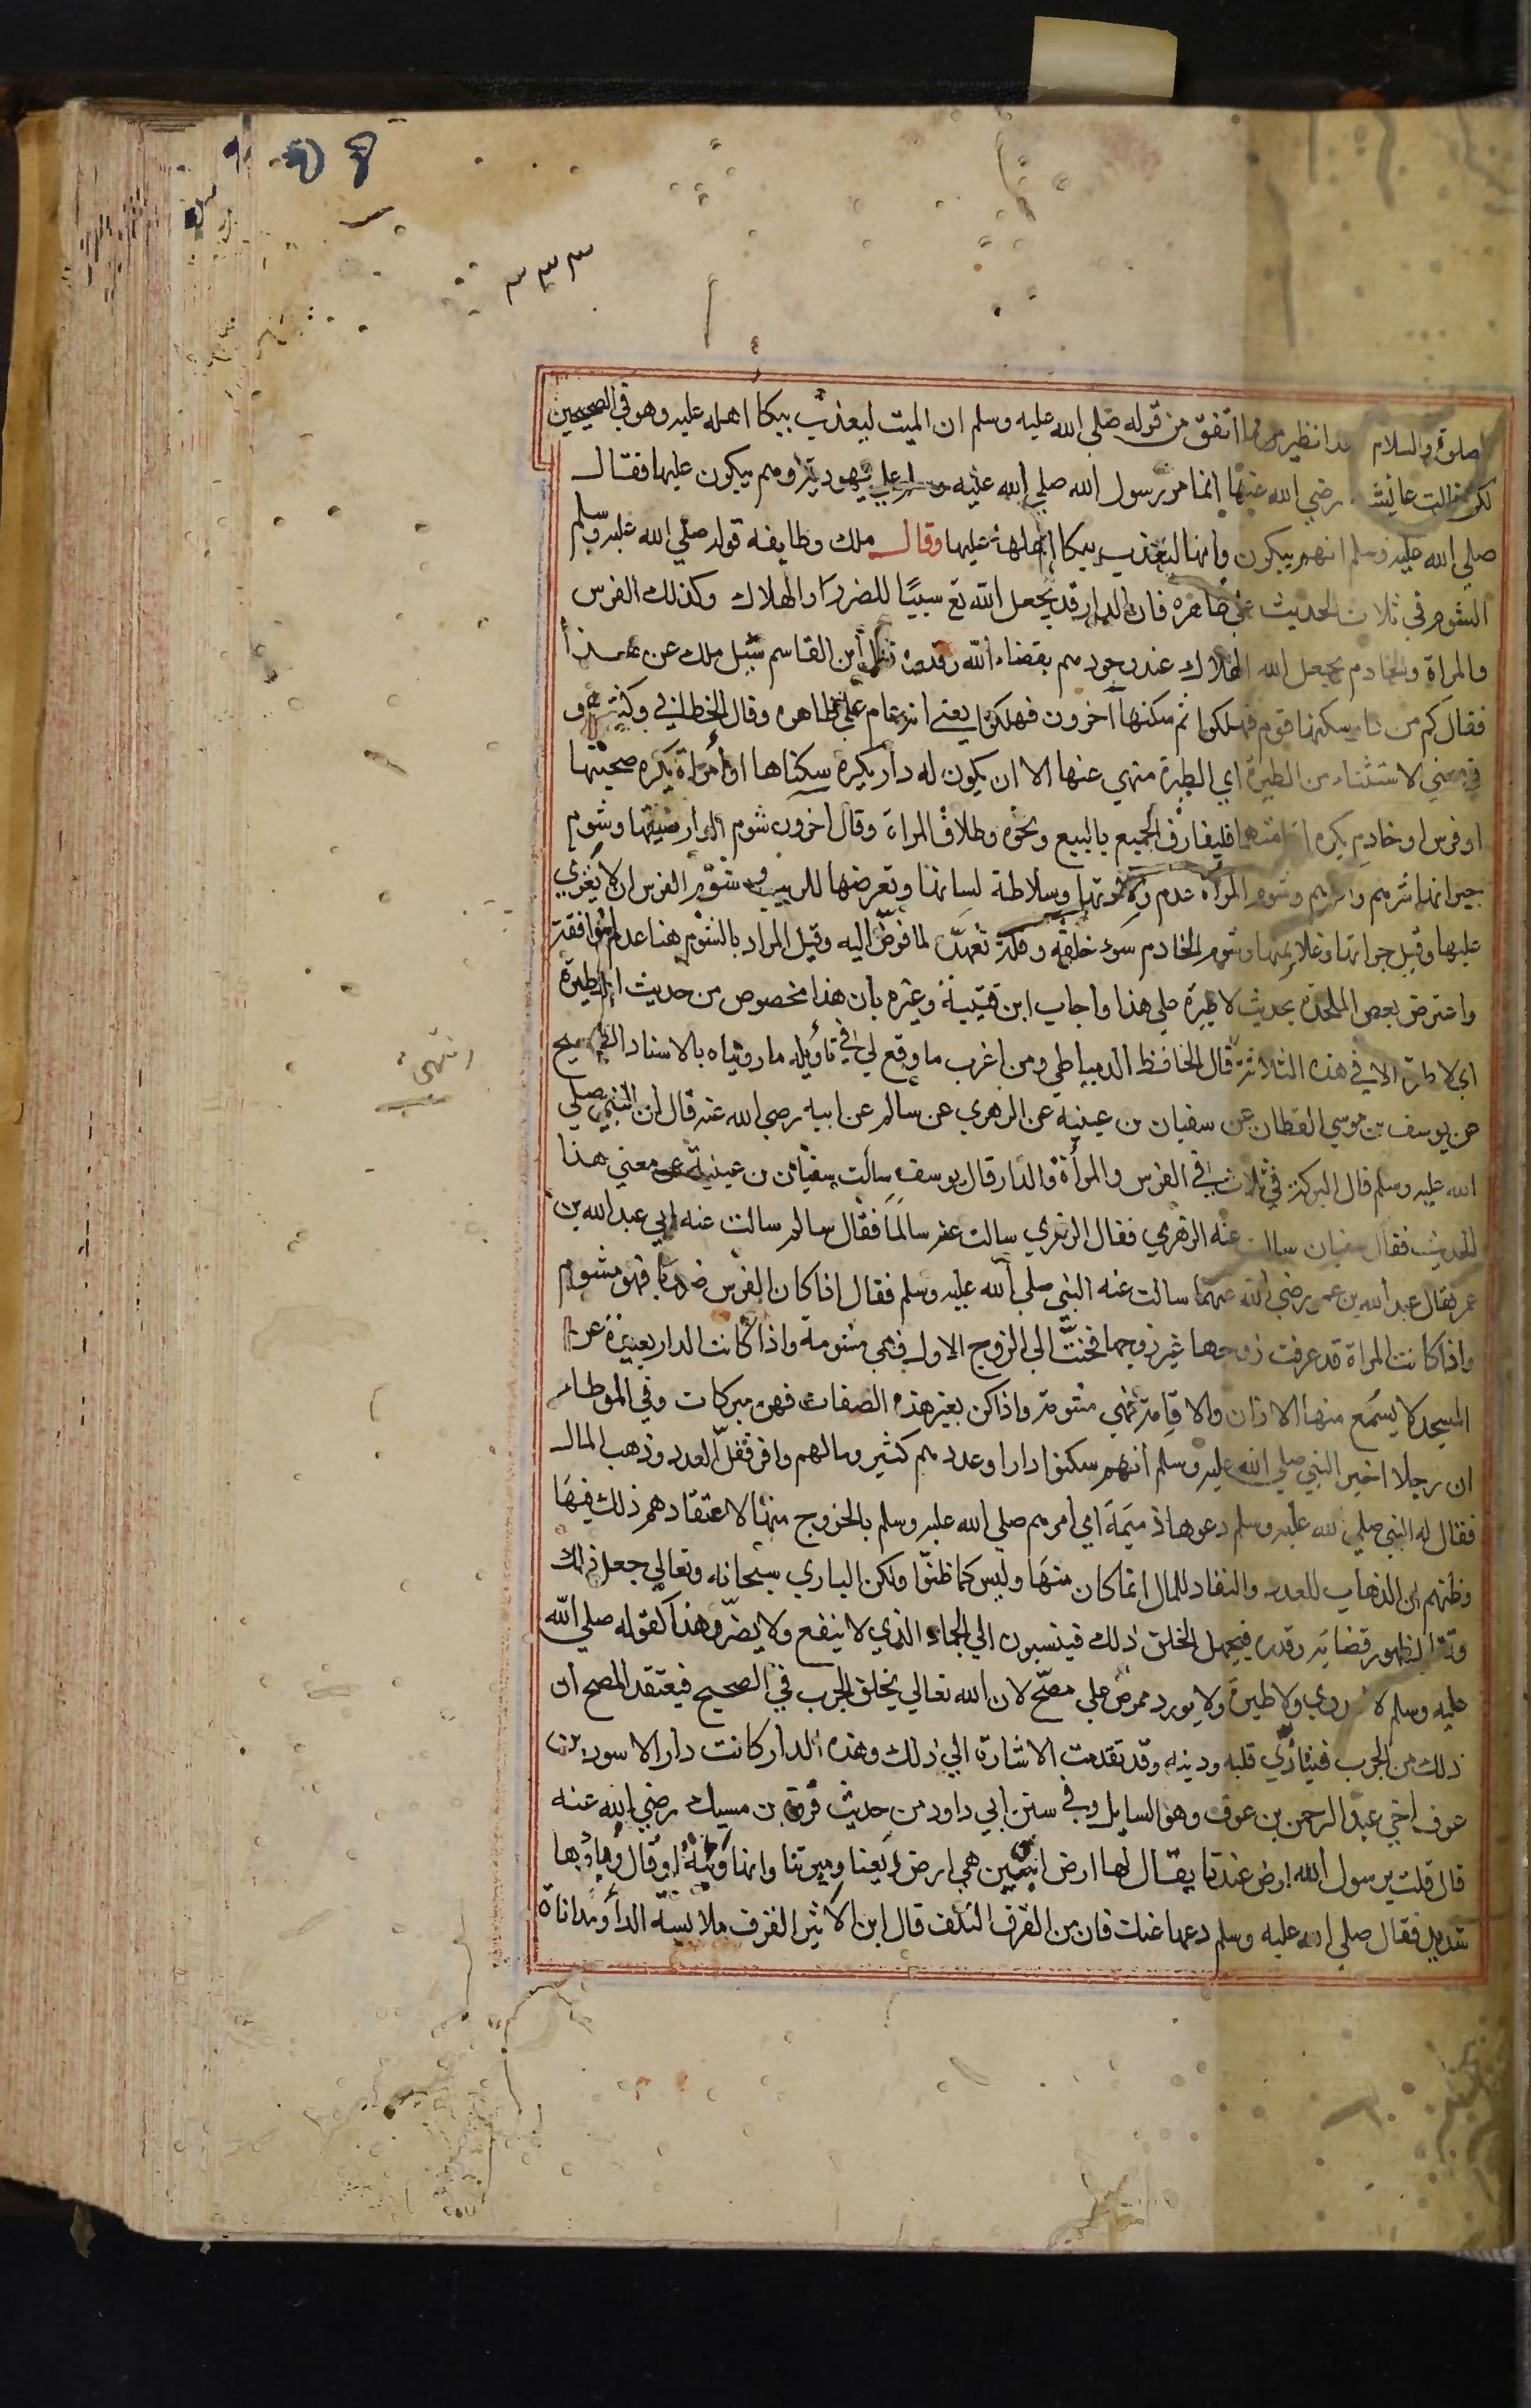 ٣٣٣
الصلوة والسلام هذا نظير ما اتفق من قوله صلى الله عليه وسلم ان الميت ليعذب ببكا اهله عليه وهو في الصحيحين
لكن قالت عايشة رضي الله عنها انما مر رسول الله صلي الله عليه وسلم علي يهودية وهم يبكون عليها فقال
صلي الله عليه وسلم انهم يبكون وانها لتعذب ببكا اهلها عليها وقال ملك وطايفه قوله صلي الله عليه وسلم
الشوم في ثلاث الحديث علي ظاهره فان الدار قد يجعل الله تع سببًا للضرر او الهلاك وكذلك الفرس
والمراة والخادم يجعل الله الهلاك عند وجودهم بقضاء الله وقدره نقل ابن القاسم سيل ملك عن هذا
فقال كم من دار سكنها قوم فهلكوا ثم سكنها آخرون فهلكوا يعني انه عام علي ظاهره وقال الخطابي وكثيرون
في معني الاستثناء من الطيرة اي الطيرة منهي عنها الا ان يكون له دار يكره سكناها او أمراة يكره صحبتها
او فرس او خادم يكره اقامتهما فليفارق الجميع بالبيع ونحوه وطلاق المراة وقال اخرون شوم الدار ضيقها وشوم
جيرانها شرهم واذاهم وشوم المرأة عدم ولادتها وسلاطة لسانها وتعرضها للريب وشوم الفرس ان لا يغزي
عليها وقيل حرانها وغلاء ثمنها وشوم الخادم سوء خلقه وقلة تعهده لما فوض اليه وقيل المراد بالشوم هنا عدم الموافقة
واعترض بعض الملحدة بحديث لا طيرة علي هذا واجاب ابن قتيبة وغيره بان هذا مخصوص من حديث لا طيرة
اي لا طيرة الا في هذه الثلاثة قال الحافظ الدمياطي ومن اغرب ما وقع لي في تأويله ما رويناه بالاسناد الصحيح
عن يوسف بن موسي القطان عن سفيان بن عيينه عن الزهري عن سالم عن ابيه رضي الله عنه قال ان النبي صلي
الله عليه وسلم قال البركة في ثلاث في الفرس والمرأة والدار قال يوسف سألت سفيان بن عيينة عن معني هذا
الحديث فقال سفيان سالت عنه الزهري فقال الزهري سالت عنه سالمًا فقال سالم سالت عنه ابي عبد الله بن
عمر فقال عبد الله بن عمر رضي الله عنهما سالت عنه النبي صلي الله عليه وسلم فقال اذا كان الفرس ضروبا فهو مشوم
واذا كانت المراة قد عرفت زوجا غير زوجها فحنت الي الزوج الاول فهي مشومة واذا كانت الدار بعيدة عن
المسجد لا يسمع منها الاذان والاقامة فهي مشومة واذا كن بغير هذه الصفات فهن مبركات وفي الموطاء
ان رجلا اخبر النبي صلي الله عليه وسلم انهم سكنوا دارا وعددهم كثير ومالهم وافر فقل العدد وذهب المال
فقال له النبي صلي الله عليه وسلم دعوها ذميمة اي امرهم صلي الله عليه وسلم بالخروج منها لاعتقادهم ذلك فيها
وظنهم ان الذهاب للعدد والنفاد للمال انما كان منها وليس كما ظنوا ولكن الباري سبحانه وتعالي جعل ذلك
وقتا لظهور قضائه وقدره فيجهل الخلق ذلك فينسبون الي الجماد الذي لا ينفع ولا يضر وهذا كقوله صلي الله
عليه وسلم لا عدوي ولا طيرة ولا يورد ممرض علي مصح لان الله تعالي يخلق الجرب في الصحيح فيعتقد المصح ان
ذلك من الجرب فيتأذي قلبه ودينه وقد تقدمت الاشارة الي ذلك وهذه الدار كانت دار الاسود بن
عوف اخي عبد الرحمن بن عوف وهو السايل وفي سنن ابي داود من حديث فروة بن مسيك رضي الله عنه
قال قلت يرسول الله ارض عندنا يقال لها ارض ابين هي ارض ريعنا وميرتنا وانها وبئة او قال وباؤها
شديد فقال صلي الله عليه وسلم دعها عنك فان من القرف التلف قال ابن الاثير القرف ملابسة الدأ ومداناة
انتهى